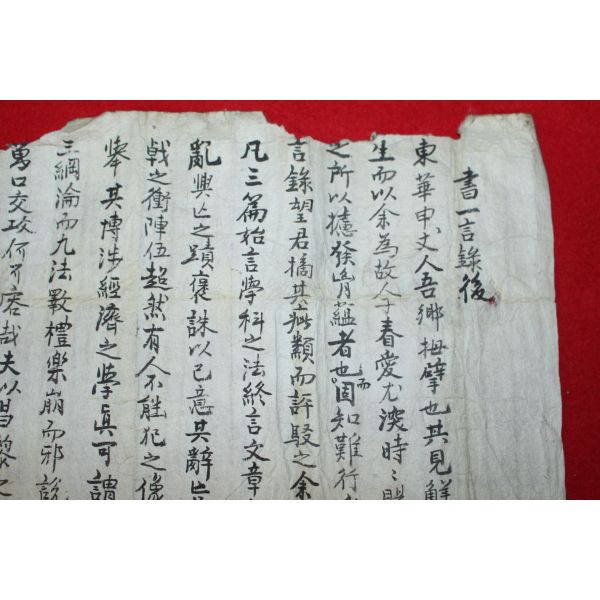 書一言錄後
東華申丈人吾鄉拇擘也其見解
生而以余為故人子春愛尤深時〻賜
之所以攄發幽蘊者也而固知難行
言錄望君摘其疵纇而評駁之余
凡三篇始言學科之法終言文章
亂興亡之蹟褒誅以己意其辭
戟之衝陣伍超然有人不能犯之像
犖其博涉經濟之學眞可謂
三綱淪而九法斁禮樂崩而邪說
萬口交攻何可磨哉夫以昌黎之